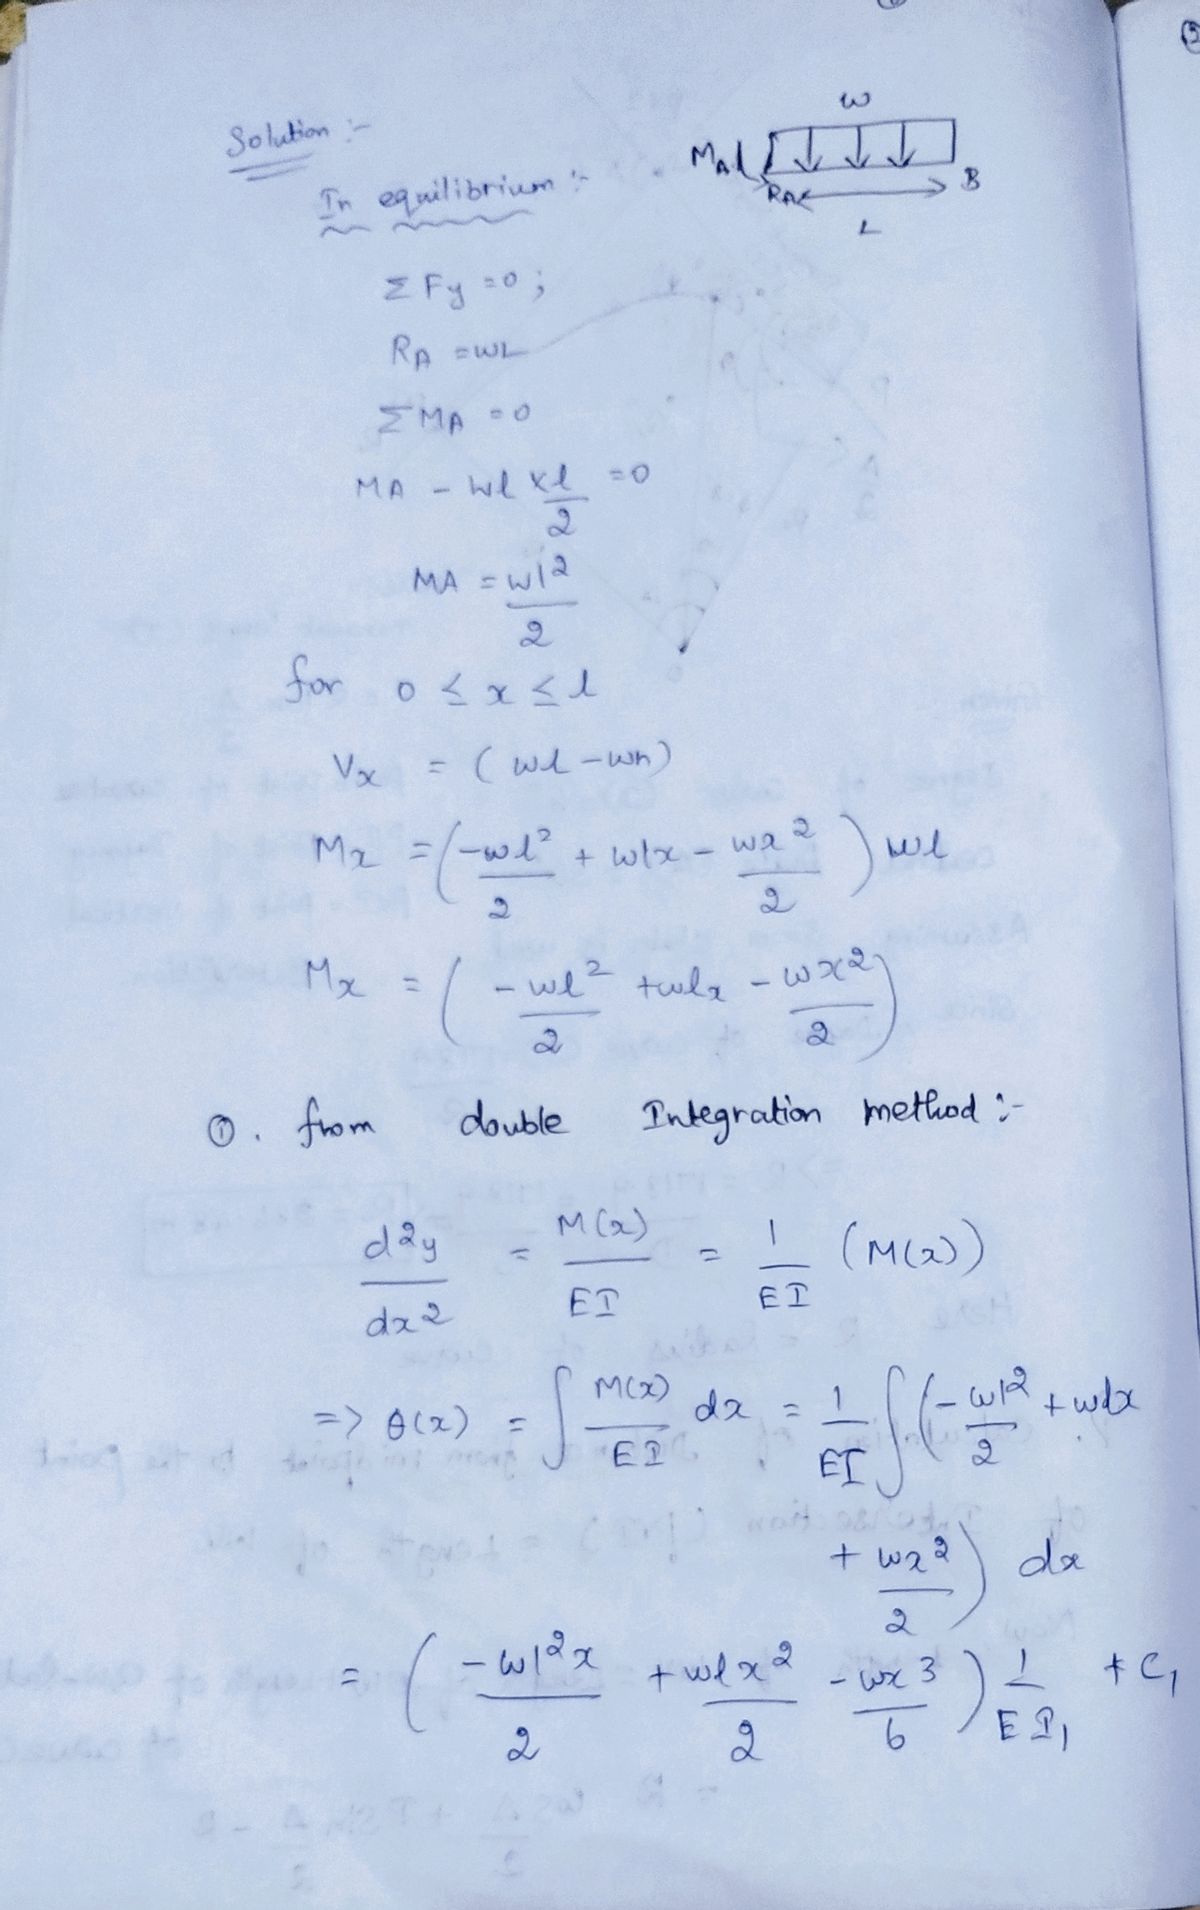 Solution :-
w
MA
RA
B
L
In equilibrium :-
Σ Fy = 0 ;
RA = WL
Σ MA = 0
MA - wl x l/2 = 0
MA = wl²/2
for 0 ≤ x ≤ l
Vx = ( wl - wn)
Mx = ( -wl²/2 + wlx - wx²/2 ) wl
Mx = ( -wl²/2 + wlx - wx²/2 )
①. from double Integration method :-
d²y/dx² = M(x)/EI = 1/EI (M(x))
=> θ(x) = ∫ M(x)/EI dx = 1/EI ∫ ( -wl²/2 + wlx
+ wx²/2 ) dx
= ( -wl²x/2 + wlx²/2 - wx3/6 ) 1/EI1 + C1